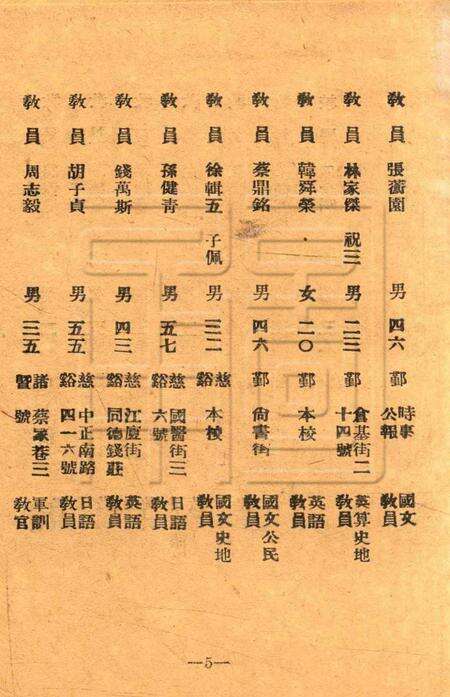 教員 張薌園 男 四六 鄞 時事公報 國文教員
教員 林家傑 祝三 男 二三 鄞 倉基街二十四號 英算史地教員
教員 韓舜榮 女 二〇 鄞 本校 英語教員
教員 蔡鼎銘 男 四六 鄞 尚書街 國文公民教員
教員 徐輯五 子佩 男 三二 慈谿 本校 國文史地教員
教員 孫健青 男 五七 慈谿 國醫街三六號 日語教員
教員 錢萬斯 男 四三 慈谿 江廈街同德錢莊 英語教員
教員 胡子貞 男 五五 慈谿 中正南路四一六號 日語教員
教員 周志毅 男 三五 諸暨 蔡家巷三號 軍訓教官
—5—